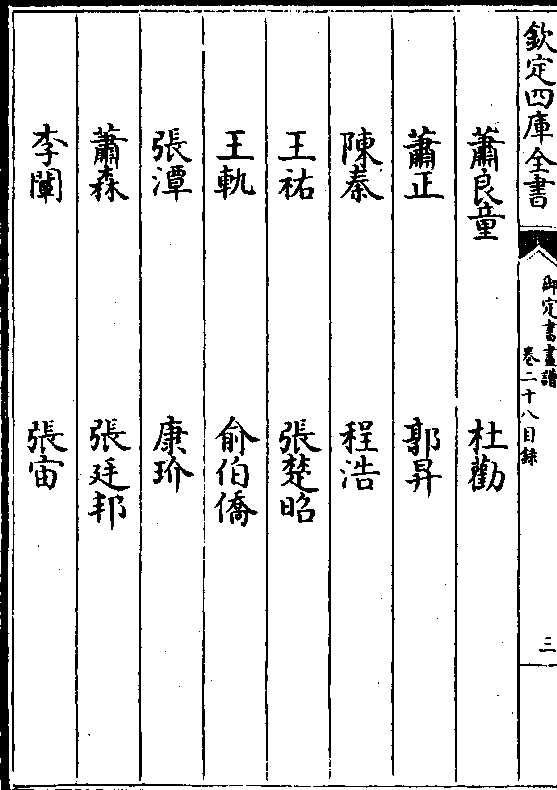 欽定四庫全書
御定書畫譜
卷二十八目錄
三
蕭良童 杜勸
蕭正 郭昇
陳蓁 程浩
王祐 張楚昭
王軌 俞伯僑
張潭 康玠
蕭森 張廷邦
李闡 張宙